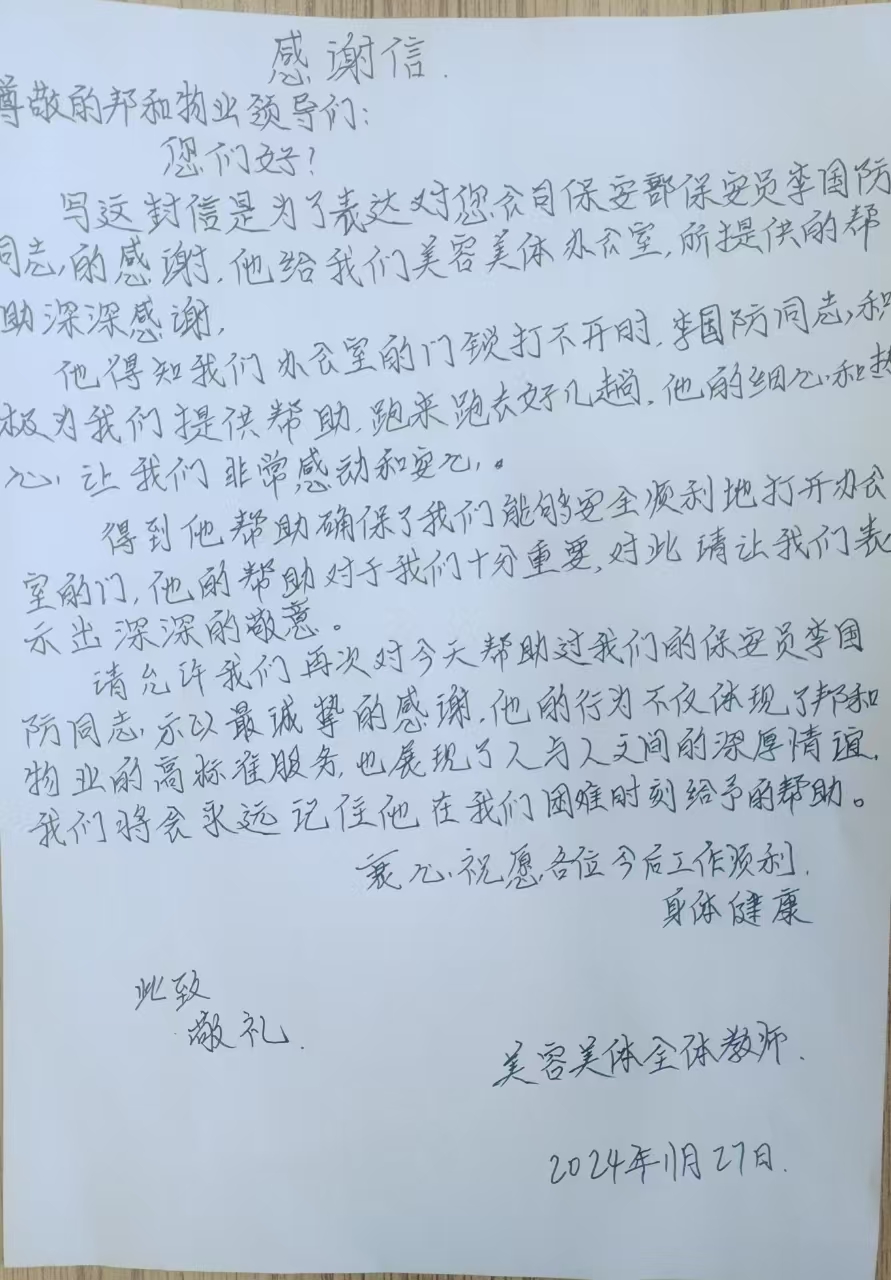 感谢信.
尊敬的邦和物业领导们:
您们好?
写这封信是为了表达对您公司保安部保安员李国防
同志,的感谢,他给我们美容美体办公室,所提供的帮
助深深感谢,
他得知我们办公室的门锁打不开时,李国防同志,积
极为我们提供帮助,跑来跑去好几趟,他的细心和热
心,让我们非常感动和安心,。
得到他帮助确保了我们能够安全顺利地打开办公
室的门,他的帮助对于我们十分重要,对此请让我们表
示出深深的敬意。
请允许我们再次对今天帮助过我们的保安员李国
防同志,示以最诚挚的感谢,他的行为不仅体现了邦和
物业的高标准服务,也展现了人与人之间的深厚情谊,
我们将会永远记住他在我们困难时刻给予的帮助。
衷心,祝愿,各位今后工作顺利,
身体健康
此致
敬礼.
美容美体全体教师.
2024年11月27日.